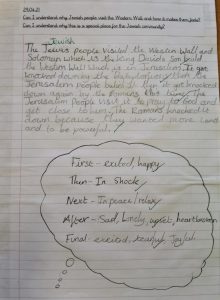 29.04.21
Can I understand why Jewish people visit the Western Wall and how it makes them feel?
Can I understand why this is a special place for the Jewish community?
Jewish
The Jewis people visited the Western Wall and
Soloman which is the King Davids Son build
the Western Wall which is in Jerusalem. It got
knocked down by the babylonians then the
Jerusalem people build it then it got knocked
down again by the Romens this time. The
Jerusalem People visit it to pray to God and
get close to him. The Romans knocked it
down because they wanted more land
and to be powerful.
First - exited, happy
Then - In Shock
Next - In peace / relax
After - Sad, Lonely, upset, heartbroken
Final - excited, Joyful